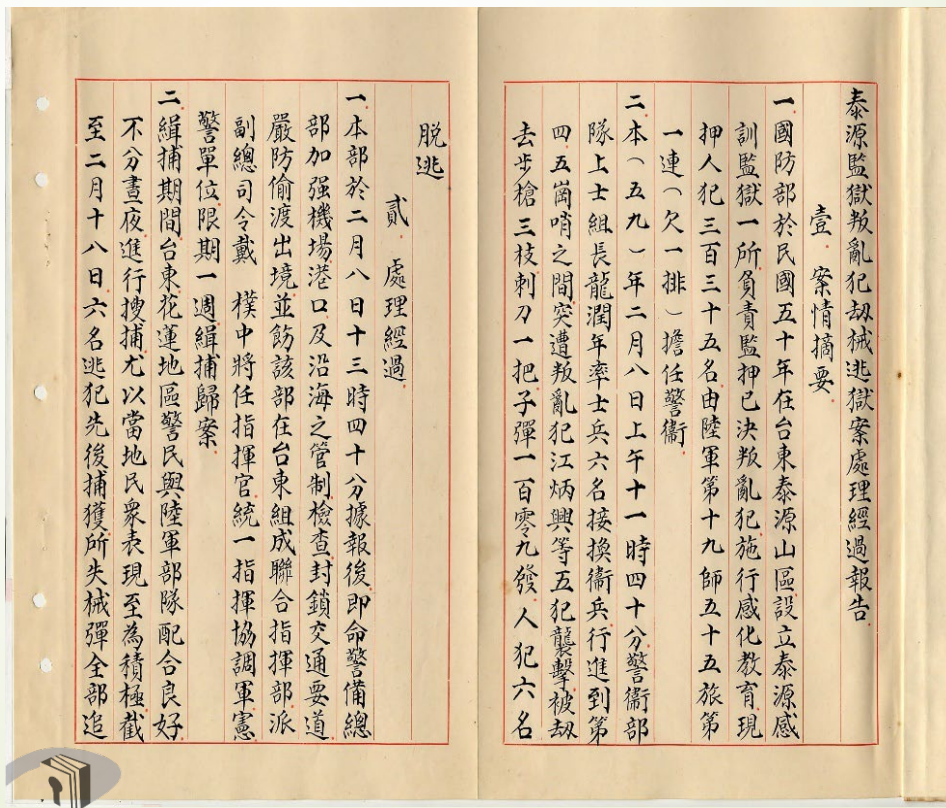 泰源監獄叛亂犯刼械逃獄案處理經過報告
壹．案情摘要
一國防部於民國五十年在台東泰源山區設立泰源感
訓監獄一所負責監押已決叛亂犯施行感化教育現
押人犯三百三十五名由陸軍第十九師五十五旅第
一連（欠一排）擔任警衞
二本（五九）年二月八日上午十一時四十分警衞部
隊上士組長龍潤年率士兵六名接換衞兵行進到第
四五崗哨之間突遭叛亂犯江炳興等五犯襲擊被刼
去步槍三枝刺刀一把子彈一百零九發人犯六名
脫逃
貳．處理經過
一本部於二月八日十三時四十分據報後即命警備總
部加强機場港口及沿海之管制檢查封鎖交通要道
嚴防偷渡出境並飭該部在台東組成聯合指揮部派
副總司令戴　樸中將任指揮官統一指揮協調軍憲
警單位限期一週緝捕歸案
二緝捕期間台東花蓮地區警民與陸軍部隊配合良好
不分晝夜進行搜捕尤以當地民衆表現至為積極截
至二月十八日六名逃犯先後捕獲所失械彈全部追